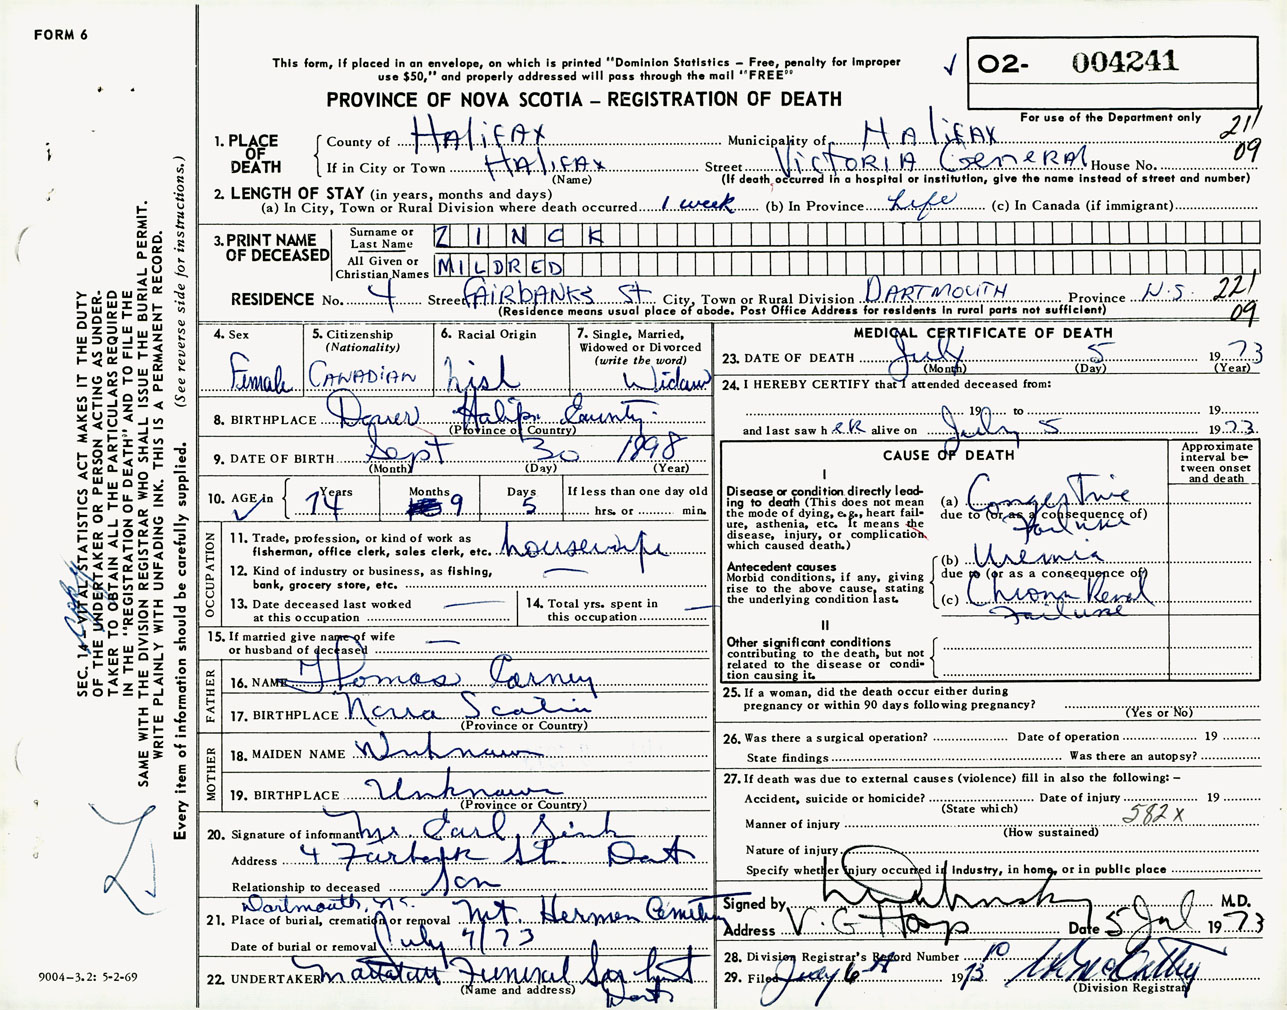 FORM 6
This form, if placed in an envelope, on which is printed "Dominion Statistics – Free, penalty for improper
use $50," and properly addressed will pass through the mail "FREE"
✓ O2- 004241
PROVINCE OF NOVA SCOTIA – REGISTRATION OF DEATH
For use of the Department only
211
09
1. PLACE OF DEATH
County of Halifax Municipality of Halifax
If in City or Town Halifax Street Victoria General House No.
(Name) (If death occurred in a hospital or institution, give the name instead of street and number)
2. LENGTH OF STAY (in years, months and days)
(a) In City, Town or Rural Division where death occurred 1 week (b) In Province Life (c) In Canada (if immigrant)
3. PRINT NAME OF DECEASED
Surname or Last Name ZINCK
All Given or Christian Names MILDRED
RESIDENCE No. 4 Street Fairbanks St City, Town or Rural Division Dartmouth Province N.S. 221
09
(Residence means usual place of abode. Post Office Address for residents in rural parts not sufficient)
4. Sex
Female
5. Citizenship
(Nationality)
Canadian
6. Racial Origin
7. Single, Married,
Widowed or Divorced
(write the word)
Widow
8. BIRTHPLACE Dover Halifx County
(Province or Country)
9. DATE OF BIRTH Sept 30 1898
(Month) (Day) (Year)
10. AGE in ✓ Years 74 Months 9 Days 5 If less than one day old
hrs. or min.
OCCUPATION
11. Trade, profession, or kind of work as
fisherman, office clerk, sales clerk, etc. housewife
12. Kind of industry or business, as fishing,
bank, grocery store, etc. —
13. Date deceased last worked
at this occupation —
14. Total yrs. spent in
this occupation —
15. If married give name of wife
or husband of deceased —
FATHER
16. NAME Thomas Carney
17. BIRTHPLACE Nova Scotia
(Province or Country)
MOTHER
18. MAIDEN NAME Unknown
19. BIRTHPLACE Unknown
(Province or Country)
20. Signature of informant Mr Earl Zink
Address 4 Fairbank St. Dart
Relationship to deceased Son
Dartmouth, N.S.
21. Place of burial, cremation or removal Mt. Hermen Cemetry
Date of burial or removal July 7/73
22. UNDERTAKER Funeral Ser
(Name and address)
Dart
MEDICAL CERTIFICATE OF DEATH
23. DATE OF DEATH July 5 1973
(Month) (Day) (Year)
24. I HEREBY CERTIFY that I attended deceased from:
19 to 19
and last saw hER alive on July 5 1973
CAUSE OF DEATH
Approximate
interval be-
tween onset
and death
I
Disease or condition directly lead-
ing to death (This does not mean
the mode of dying, e.g., heart fail-
ure, asthenia, etc. It means the
disease, injury, or complication
which caused death.)
(a) Congestive
due to (or as a consequence of)
Failure
Antecedent causes
Morbid conditions, if any, giving
rise to the above cause, stating
the underlying condition last.
(b) Uremia
due to (or as a consequence of)
(c) Chronic Renal
Failure
II
Other significant conditions
contributing to the death, but not
related to the disease or condi-
tion causing it.
25. If a woman, did the death occur either during
pregnancy or within 90 days following pregnancy?
(Yes or No)
26. Was there a surgical operation? Date of operation 19
State findings Was there an autopsy?
27. If death was due to external causes (violence) fill in also the following: –
Accident, suicide or homicide? Date of injury 19
(State which)
582X
Manner of injury
(How sustained)
Nature of injury
Specify whether injury occurred in Industry, in home, or in public place
Signed by M.D.
Address V. G Hosp Date 5 Jul 1973
28. Division Registrar's Record Number
29. Filed July 6th 1973
(Division Registrar)
SEC. 14 VITAL STATISTICS ACT MAKES IT THE DUTY
OF THE UNDERTAKER OR PERSON ACTING AS UNDER-
TAKER TO OBTAIN ALL THE PARTICULARS REQUIRED
IN THE "REGISTRATION OF DEATH" AND TO FILE THE
SAME WITH THE DIVISION REGISTRAR WHO SHALL ISSUE THE BURIAL PERMIT.
WRITE PLAINLY WITH UNFADING INK. THIS IS A PERMANENT RECORD.
Every item of information should be carefully supplied. (See reverse side for instructions.)
9004–3.2: 5-2-69